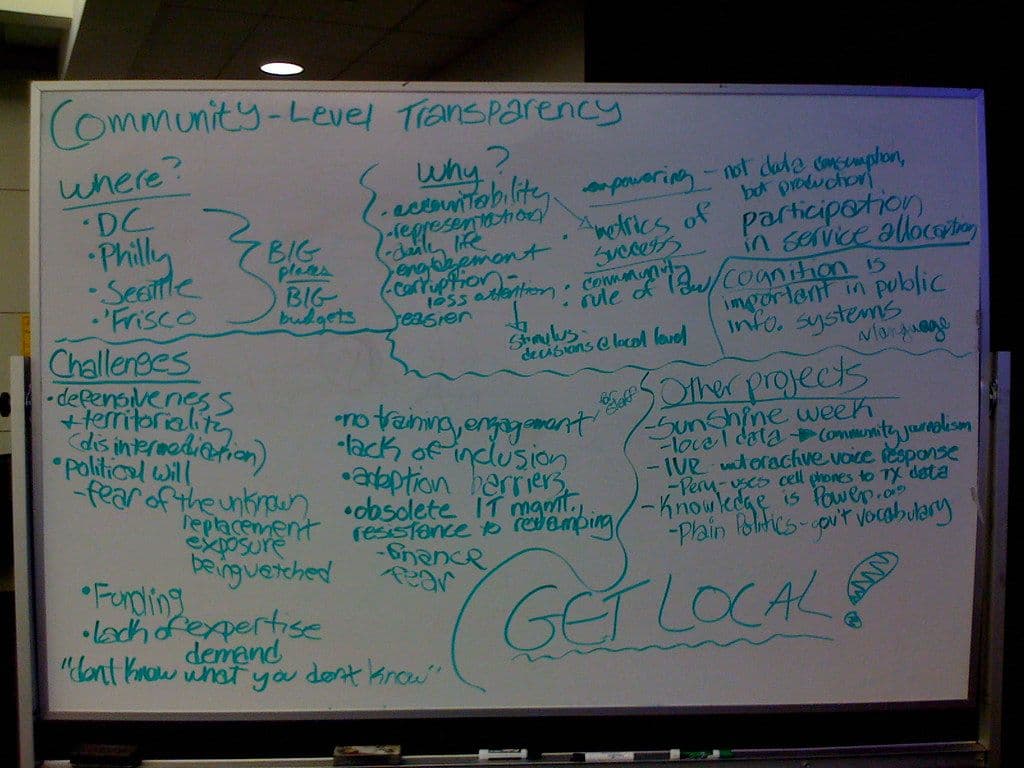 Community-Level Transparency
Where?
• DC
• Philly
• Seattle
• 'Frisco
BIG
places
BIG
budgets
Why?
• accountability
• representation
• daily life
engagement
• corruption -
less attention
• easier
• empowering - not data consumption,
but production
• metrics of
success
• community
• rule of law
Stimulus-
decisions @ local level
participation
in service allocation
Cognition is
important in public
info. systems
language
Challenges
• defensiveness
+ territoriality
(disintermediation)
• political will
- fear of the unknown
replacement
exposure
being watched
• Funding
• Lack of expertise
demand
"don't know what you don't know"
• no training, engagement
for staff
• lack of inclusion
• adoption barriers
• obsolete IT mgmt.
resistance to revamping
- finance
fear
Other projects
- Sunshine week
- local data → community journalism
- IVR - interactive voice response
- Peru - uses cell phones to TX data
- Knowledge is Power.org
- Plain Politics - gov't vocabulary
GET LOCAL!